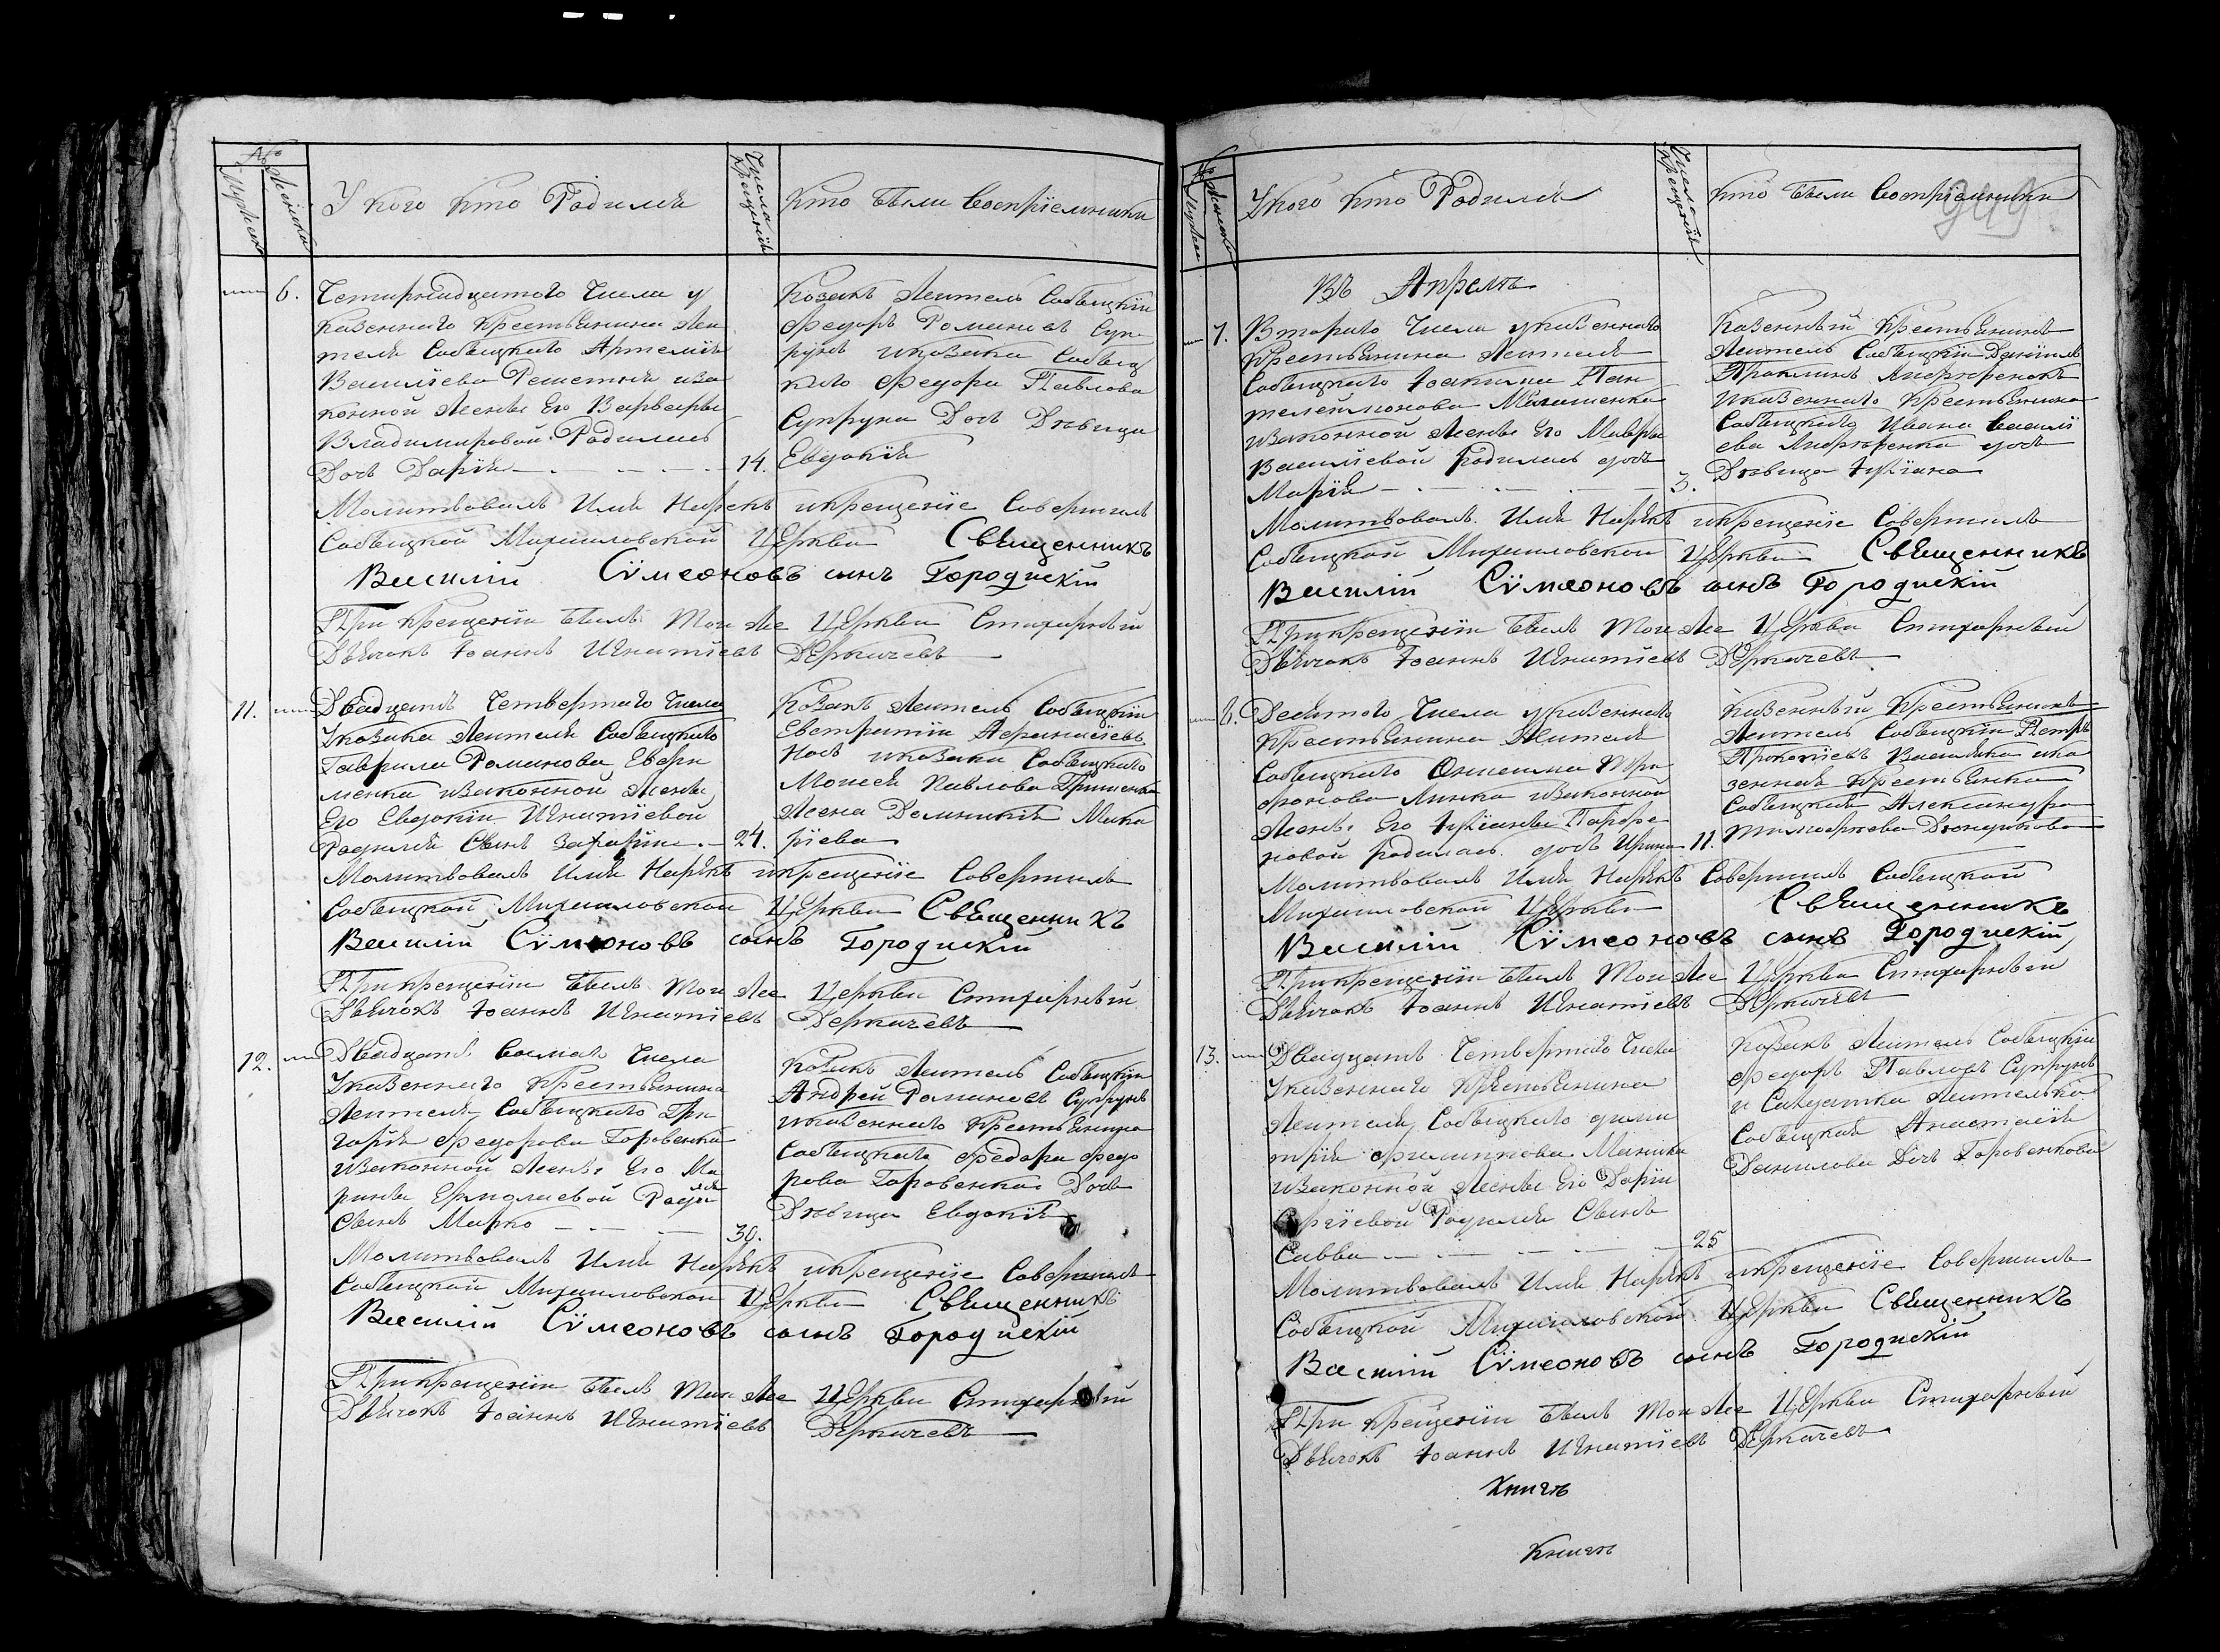 №
Мужеск
Женска
У кого кто Родился
Числа Крещенія
Кто были воспріемники
6.
Четирнадцатого числа у
казенного крестьянина жи
теля Собыцкаго Артемія
Василіева Решетня иза
конной жены его Варвары
Владимировой Родилась
Дочь Дарія
14.
Козакъ житель Собыцкій
Федоръ Романовъ Суп
рунъ и козака Собыц
каго Федора Павлова
Супруна Дочь Девица
Евдокія
Молитвовалъ Имя Нарекъ и крещеніе Совершилъ
Собыцкой Михаиловской Церкви Священникъ
Василій Сѵмеоновъ сынъ Городискій
При крещеніи былъ той же Церкви Стихарный
Дьячокъ Іоаннъ Игнатіевъ Деркачевъ
11.
Двадцать Четвертаго числа
У козака жителя Собыцкаго
Гаврила Романова
менка изаконной жены
Его Евдокіи Игнатіевой
Родился Сынъ Захарія
24.
Козакъ житель Собыцкій
Евстратій Афанасіевъ
Носъ и козака Собыцкаго
Моисея Павлова Гриценка
Жена Домникія Мака
ріева
Молитвовалъ Имя Нарѣкъ и крещеніе Совершилъ
Собыцкой Михаиловской Церкви Священникъ
Василій Сѵмеоновъ сынъ Городискій
При крещеніи былъ той же Церкви Стихарный
Дьячокъ Іоаннъ Игнатіевъ Деркачевъ
12.
Двадцать восмаго числа
У казенного крестьянина
жителя Собыцкаго Гри
горія Федорова Горовенка
изаконной жены Его Ма
рины Ермолаевой Родился
Сынъ Марко
30.
Козакъ житель Собыцкій
Андрей Романовъ Супрунъ
и казенного крестьянина
Собыцкаго Федора Федо
рова Горовенка Дочь
Девица Евдокія
Молитвовалъ Имя Нарѣкъ и крещеніе Совершилъ
Собыцкой Михаиловской Церкви Священникъ
Василій Сѵмеоновъ сынъ Городискій
При крещеніи былъ той же Церкви Стихарный
Дьячокъ Іоаннъ Игнатіевъ Деркачевъ
№
Мужеск
Женска
У кого Кто Родился
Числа Крещенія
Кто были воспріемники
949
Въ Апрелѣ
7.
Втораго числа у казенного
крестьянина жителя
Собыцкаго Іоакима Пан
телеимонова
изаконной жены Его Мавры
Василіевой Родилась дочь
Марія
3.
Казенный крестьянинъ
житель Собыцкій Даніилъ
и казенного крестьянина
Собыцкаго Ивана Василі
ева дочь
Девица Іуліана
Молитвовалъ Имя Нарѣкъ и крещеніе Совершилъ
Собыцкой Михаиловской Церкви Священникъ
Василій Сѵмеоновъ сынъ Городискій
При крещеніи былъ той же Церкви Стихарный
Дьячокъ Іоаннъ Игнатіевъ Деркачевъ
8.
Десятого числа у казенного
крестьянина жителя
Собыцкаго Онисима Три
фонова Линка изаконной
жены Его Іуліаны Парфе
новой родилась дочь Ирина
11.
Казенный крестьянинъ
житель Собыцкій Петръ
Прокопіевъ Василяка и ка
зенная крестьянка
Собыцкая Александра
Тимофеева
Молитвовалъ Имя Нарѣкъ Совершилъ Собыцкой
Михаиловской Церкви Священникъ
Василій Сѵмеоновъ сынъ Городискій
При крещеніи былъ той же Церкви Стихарный
Дьячокъ Іоаннъ Игнатіевъ Деркачевъ
13.
Двадцать Четвертаго числа
У казенного крестьянина
жителя Собыцкаго дими
трія Филиппова
изаконной жены Его Дарии
Сергіевой Родился Сынъ
Савва
25
Козакъ житель Собыцкій
Федоръ Павловъ Супрунъ
и Салдатка жителька
Собыцкая Анастасія
Данилова Дочь Горовенкова
Молитвовалъ Имя Нарѣкъ и крещеніе Совершилъ
Собыцкой Михаиловской Церкви Священникъ
Василій Сѵмеоновъ сынъ Городискій
При крещеніи былъ той же Церкви Стихарный
Дьячокъ Іоаннъ Игнатіевъ Деркачевъ
Книгѣ
Книгѣ